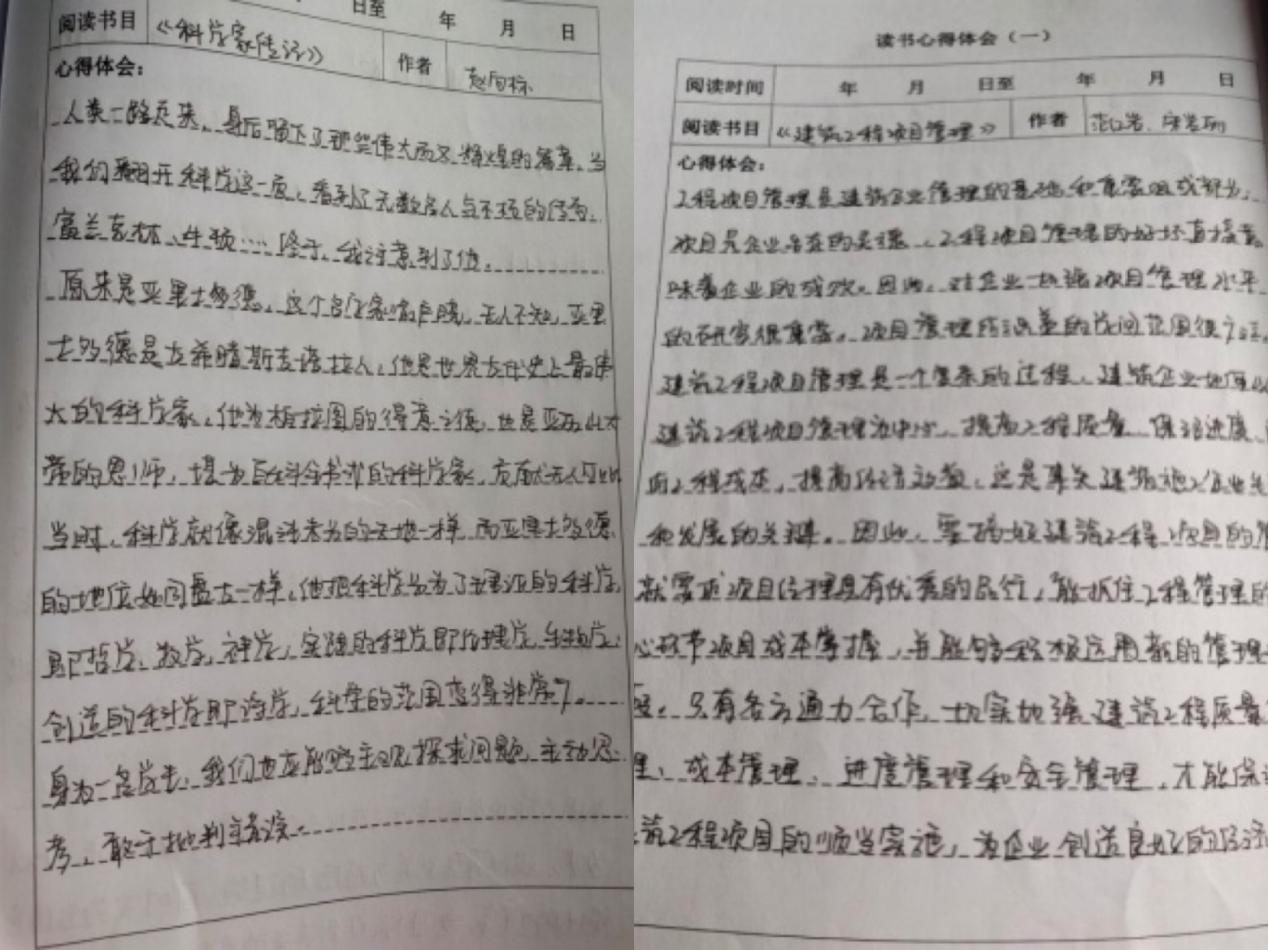 日至 年 月 日
阅读书目 《科学家传记》 作者 赵向标
心得体会：
人类一路走来，身后留下了那些伟大而又辉煌的答案。当
我们翻开科学这一页，看到了无数名人与不朽的传奇。
富兰克林、牛顿……终于，我注意到了他。
原来是亚里士多德，这个名字家喻户晓，无人不知，亚里
士多德是古希腊斯吉塔拉人，他是世界古代史上最伟
大的科学家，他为柏拉图的得意之徒，也是亚历山大
帝的恩师，堪为百科全书式的科学家，贡献无人可比
当时，科学就像混沌未分的天地一样，而亚里士多德
的地位如同盘古一样，他把科学分为了理论的科学，
即哲学、数学、神学，实践的科学即伦理学、生物学；
创造的科学即诗学，科学的范围变得非常广。
身为一名学生，我们也应能够主观探求问题，主动思
考，敢于批判错误。
读书心得体会（一）
阅读时间 年 月 日至 年 月 日
阅读书目 《建筑工程项目管理》 作者 范红岩、宋岩丽
心得体会：
工程项目管理是建筑企业管理的基础和重要组成部分，
项目是企业存在的支撑，工程项目管理的好坏直接意
味着企业的成败。因此，对企业加强项目管理水平
的研究很重要。项目管理所涵盖的学问范围很广泛，
建筑工程项目管理是一个复杂的过程，建筑企业地位以
建筑工程项目管理为中心，提高工程质量，保证进度，
工程成本，提高经济效益，这是事关建筑施工企业生
和发展的关键。因此，要搞好建筑工程项目的管
就要求项目经理具有优秀的品行，能抓住工程管理的
心环节项目成本掌握，并能够积极运用新的管理
只有各方通力合作，切实地强建筑工程质量
理、成本管理、进度管理和安全管理，才能保证
筑工程项目的顺当实施，为企业创造良好的经济